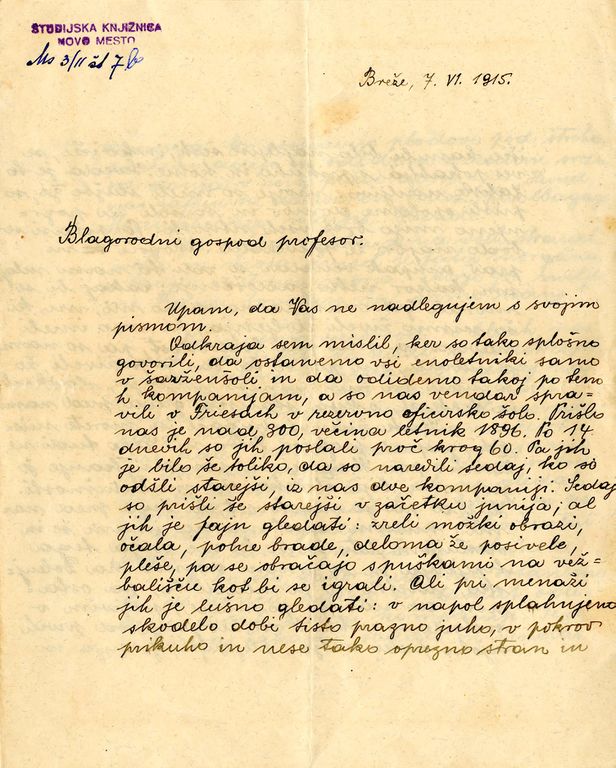 ŠTUDIJSKA KNJIŽNICA
NOVO MESTO
Ms 3/II št 7b
Breže, 7. VI. 1915.
Blagorodni gospod profesor.
Upam, da Vas ne nadlegujem s svojim
pismom.
Odkraja sem mislil, ker so tako splošno
govorili, da ostanemo vsi enoletniki samo
v šarženšoli in da odidemo takoj po tem
h kompanijam, a so nas vendar spra-
vili v Friesach v rezervno oficirsko šolo. Prišlo
nas je nad 300, večina letnik 1896. Po 14.
dnevih so jih poslali proč krog 60. Pa jih
je bilo še toliko, da so naredili sedaj, ko so
odšli starejši, iz nas dve kompaniji. Sedaj
so prišli še starejši v začetku junija; al
jih je fajn gledati: zreli možki obrazi,
očala, polne brade, deloma že posivele,
pleše, pa se obračajo s puškami na vež-
bališču kot bi se igrali. Ali pri menaži
jih je lušno gledati: v napol splahnjeno
skodelo dobi tisto prazno juho, v pokrov
prikuho in nese tako oprezno stran in